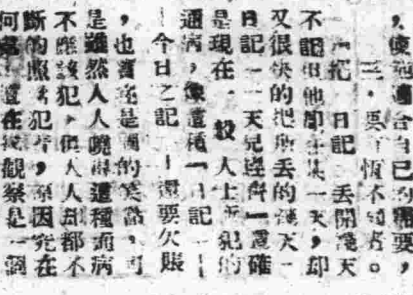 ，使適合自己的需要，
三，要有恆不者。
把日記丟開幾天
不記他一天，却
又很快的把所丟的幾天
日記一一天「這確
是現在一般人上所犯的
通病，像這種「日記」—
—今日之記—還要欠賬
，也實在是的笑話，可
是雖然人人曉得這種病
不應該犯，但人人却都不
斷的照舊犯着，原因究在
何處這在我觀察是一個